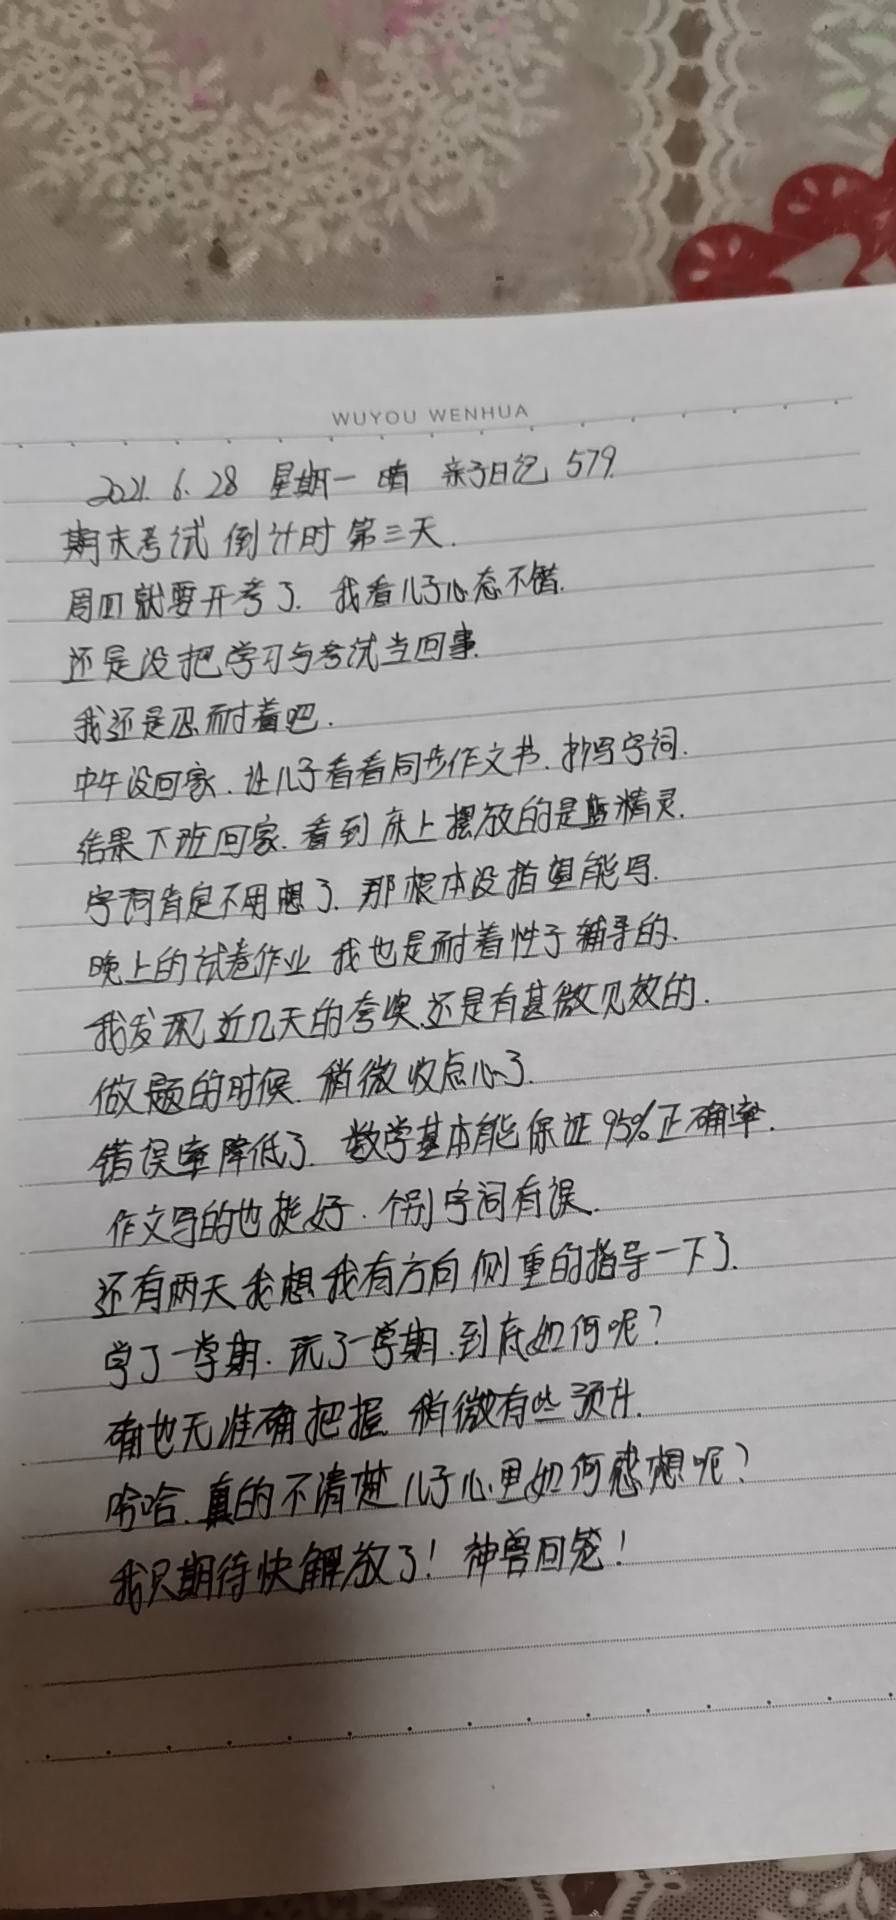 WUYOU WENHUA
2021. 6. 28 星期一 晴 亲子日记 579.
期末考试 倒计时 第三天.
周四就要开考了. 我看儿子心态不错.
还是没把学习与考试当回事.
我还是忍耐着吧.
中午没回家. 让儿子看看同步作文书. 抄写字词.
结果下班回家. 看到床上摆放的是蓝精灵.
字词肯定不用想了. 那根本没指望能写.
晚上的试卷作业 我也是耐着性子辅导的.
我发现近几天的夸奖.还是有甚微见效的.
做题的时候. 稍微收点心了.
错误率降低了. 数学基本能保证95%正确率.
作文写的也挺好. 个别字词有误.
还有两天我想我有方向侧重的指导一下了.
学了一学期. 玩了一学期. 到底如何呢?
也无准确把握. 稍微有些
哈哈. 真的不清楚儿子心里如何想呢?
我只期待快解放了! 神兽回笼!